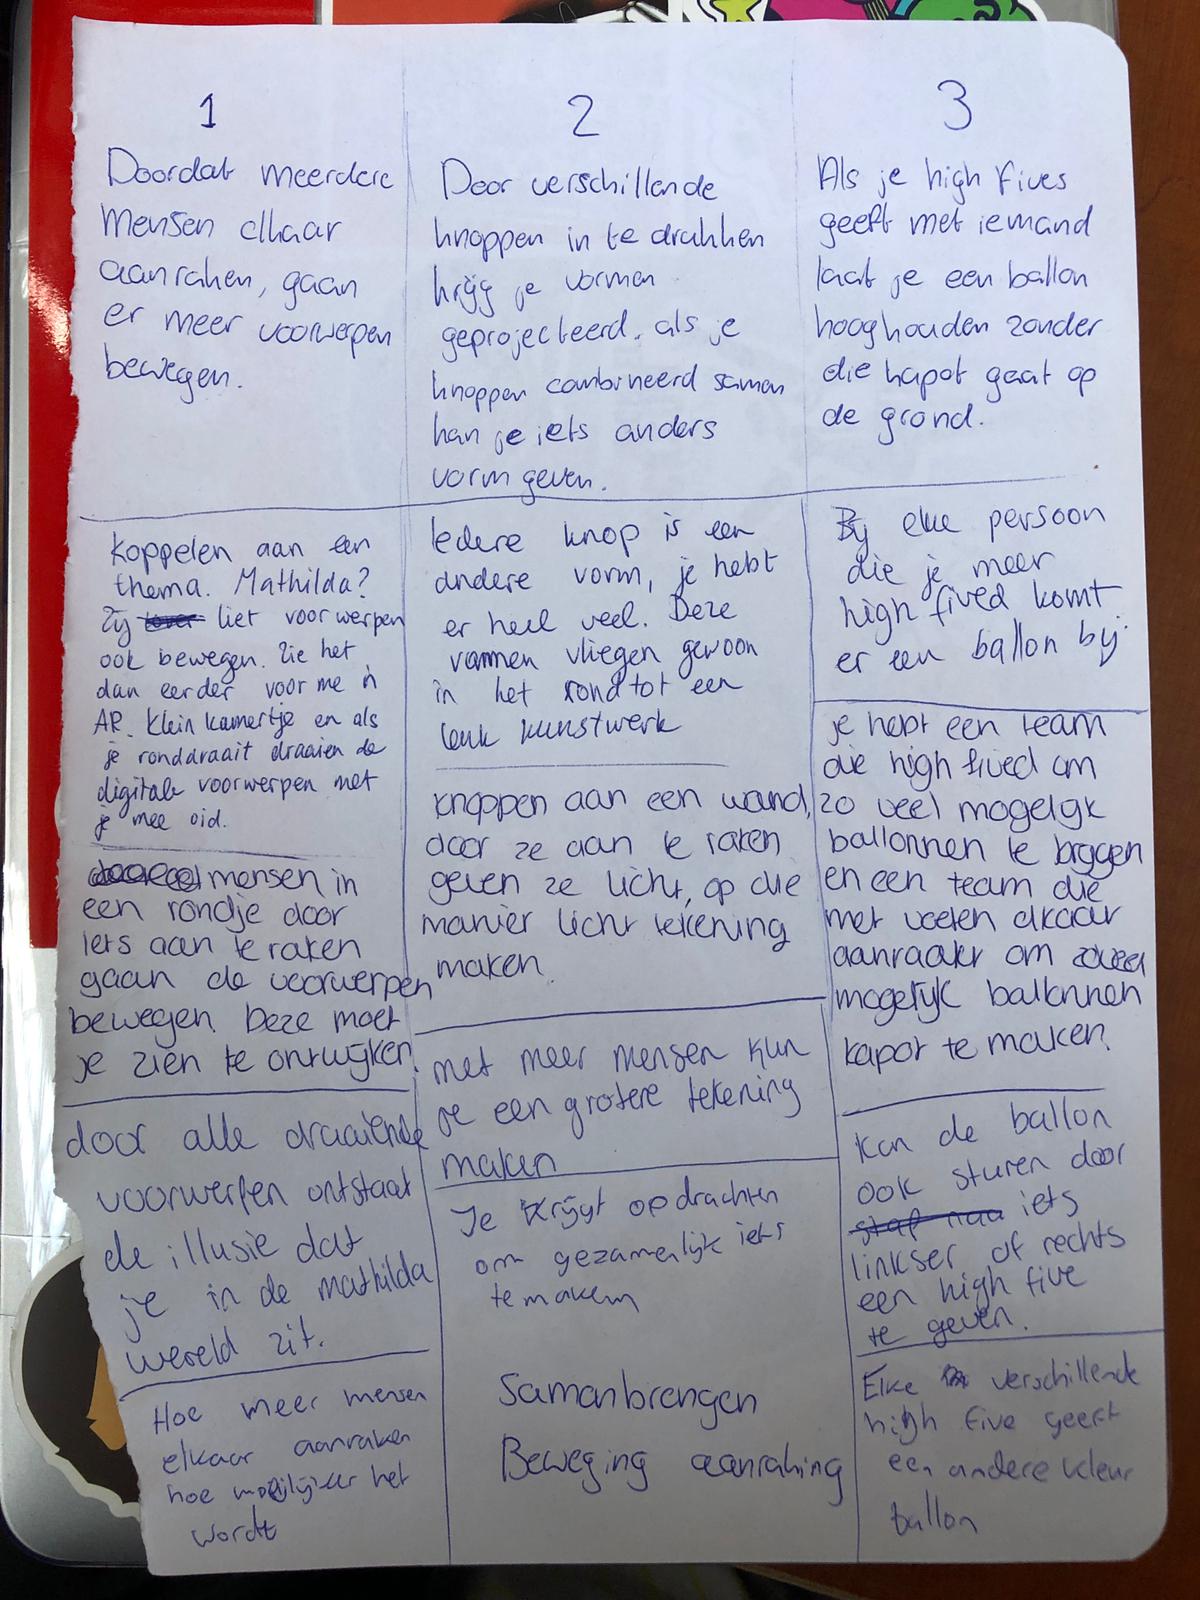 1
Doordat meerdere
mensen elkaar
aanraken, gaan
er meer voorwerpen
bewegen.
Koppelen aan een
thema. Mathilda?
Zij liet voorwerpen
ook bewegen. Zie het
dan eerder voor me in
AR. Klein kamertje en als
je ronddraait draaien de
digitale voorwerpen met
je mee oid.
mensen in
een rondje door
iets aan te raken
gaan de voorwerpen
bewegen. Deze moet
je zien te ontwijken.
door alle draaiende
voorwerpen ontstaat
de illusie dat
je in de mathilda
wereld zit.
Hoe meer mensen
elkaar aanraken
hoe moeilijker het
wordt
2
Door verschillende
knoppen in te drukken
krijg je vormen
geprojecteerd. als je
knoppen combineerd samen
kan je iets anders
vorm geven.
Iedere knop is een
andere vorm, je hebt
er heel veel. Deze
vormen vliegen gewoon
in het rond tot een
leuk kunstwerk
knoppen aan een wand,
door ze aan te raken
geven ze licht, op die
manier licht tekening
maken.
met meer mensen kun
je een grotere tekening
maken
Je krijgt opdrachten
om gezamenlijk iets
te maken
Samenbrengen
Beweging aanraking
3
Als je high fives
geeft met iemand
laat je een ballon
hooghouden zonder
die kapot gaat op
de grond.
Bij elke persoon
die je meer
high fived komt
er een ballon bij.
je hebt een team
die high fived om
zo veel mogelijk
ballonnen te krijgen
en een team die
met voeten elkaar
aanraakt om zoveel
mogelijk ballonnen
kapot te maken?
Kan de ballon
ook sturen door
iets
linkser of rechts
een high five
te geven.
Elke verschillende
high five geeft
een andere kleur
ballon